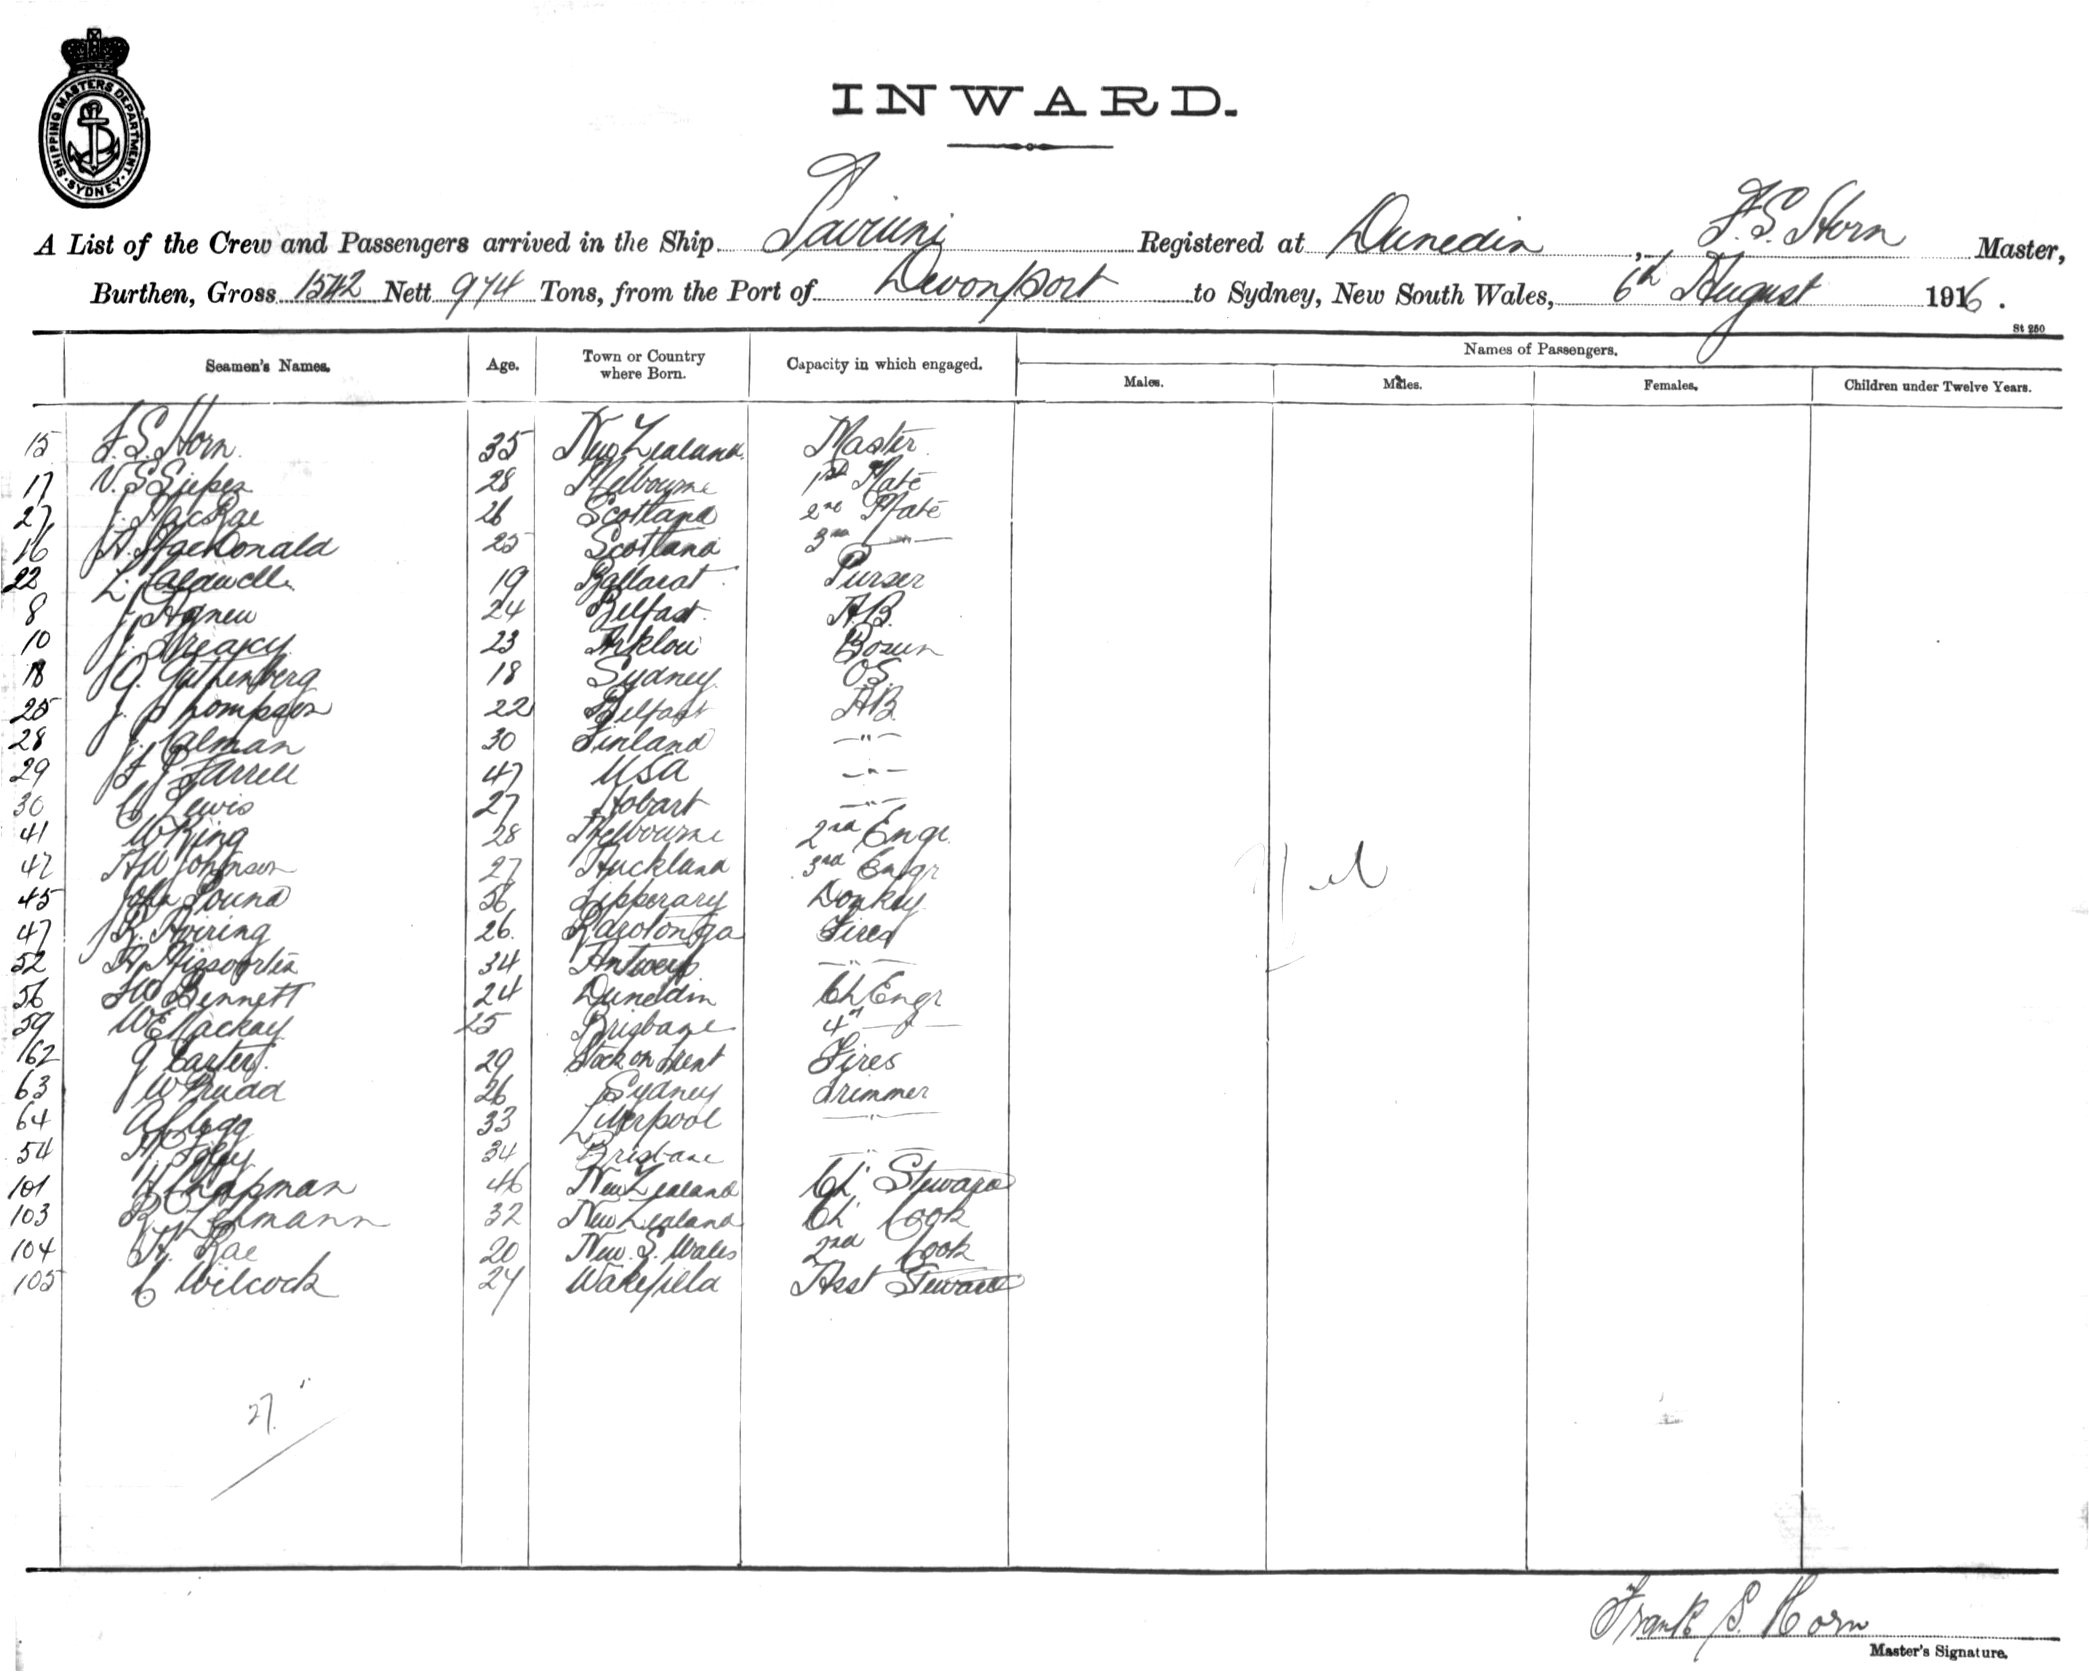 SHIPPING MASTERS DEPARTMENT. SYDNEY.
INWARD.
A List of the Crew and Passengers arrived in the Ship Taviuni Registered at Dunedin, F. S. Horn Master,
Burthen, Gross 1542 Nett 974 Tons, from the Port of Devonport to Sydney, New South Wales, 6th August 1916.
St 250
Seamen's Names. Age. Town or Country where Born. Capacity in which engaged. Names of Passengers.
Males. Males. Females. Children under Twelve Years.
15 F. S. Horn 35 New Zealand Master
17 V. S. 28 Melbourne 1st Mate
27 J. MacRae 26 Scotland 2nd Mate
16 A. MacDonald 25 Scotland 3rd —"—
22 L. Caldwell 19 Ballarat Purser
8 J. Agnew 24 Belfast A.B.
10 J. Treacy 23 Arklow Bosun
18 G. Guthenberg 18 Sydney O.S.
25 J. Thompson 22 Belfast A.B.
28 J. Calman 30 Finland —"—
29 J. P. Farrell 47 USA —"—
30 C. Lewis 27 Hobart —"—
41 W King 28 Melbourne 2nd Engr
42 A W Johnson 27 Auckland 3rd Engr
45 John Pound 56 Tipperary Donkey
47 26. Rarotonga Fires
52 34 Antwerp —"—
56 Bennett 24 Dunedin Ch Engr
59 W E Mackay 25 Brisbane 4th —"—
162 G Carter 29 Stock on Trent Fires
63 W Rudd 26 Sydney Trimmer
64 A Clegg 33 Liverpool —"—
54 Foley 34 Brisbane —"—
101 H Chapman 46 New Zealand Ch. Steward
103 R. Lehmann 32 New Zealand Ch. Cook
104 H. Rae 20 New. S. Wales 2nd Cook
105 C Wilcock 24 Wakefield Asst Steward
Nil
27
Frank S. Horn
Master's Signature.